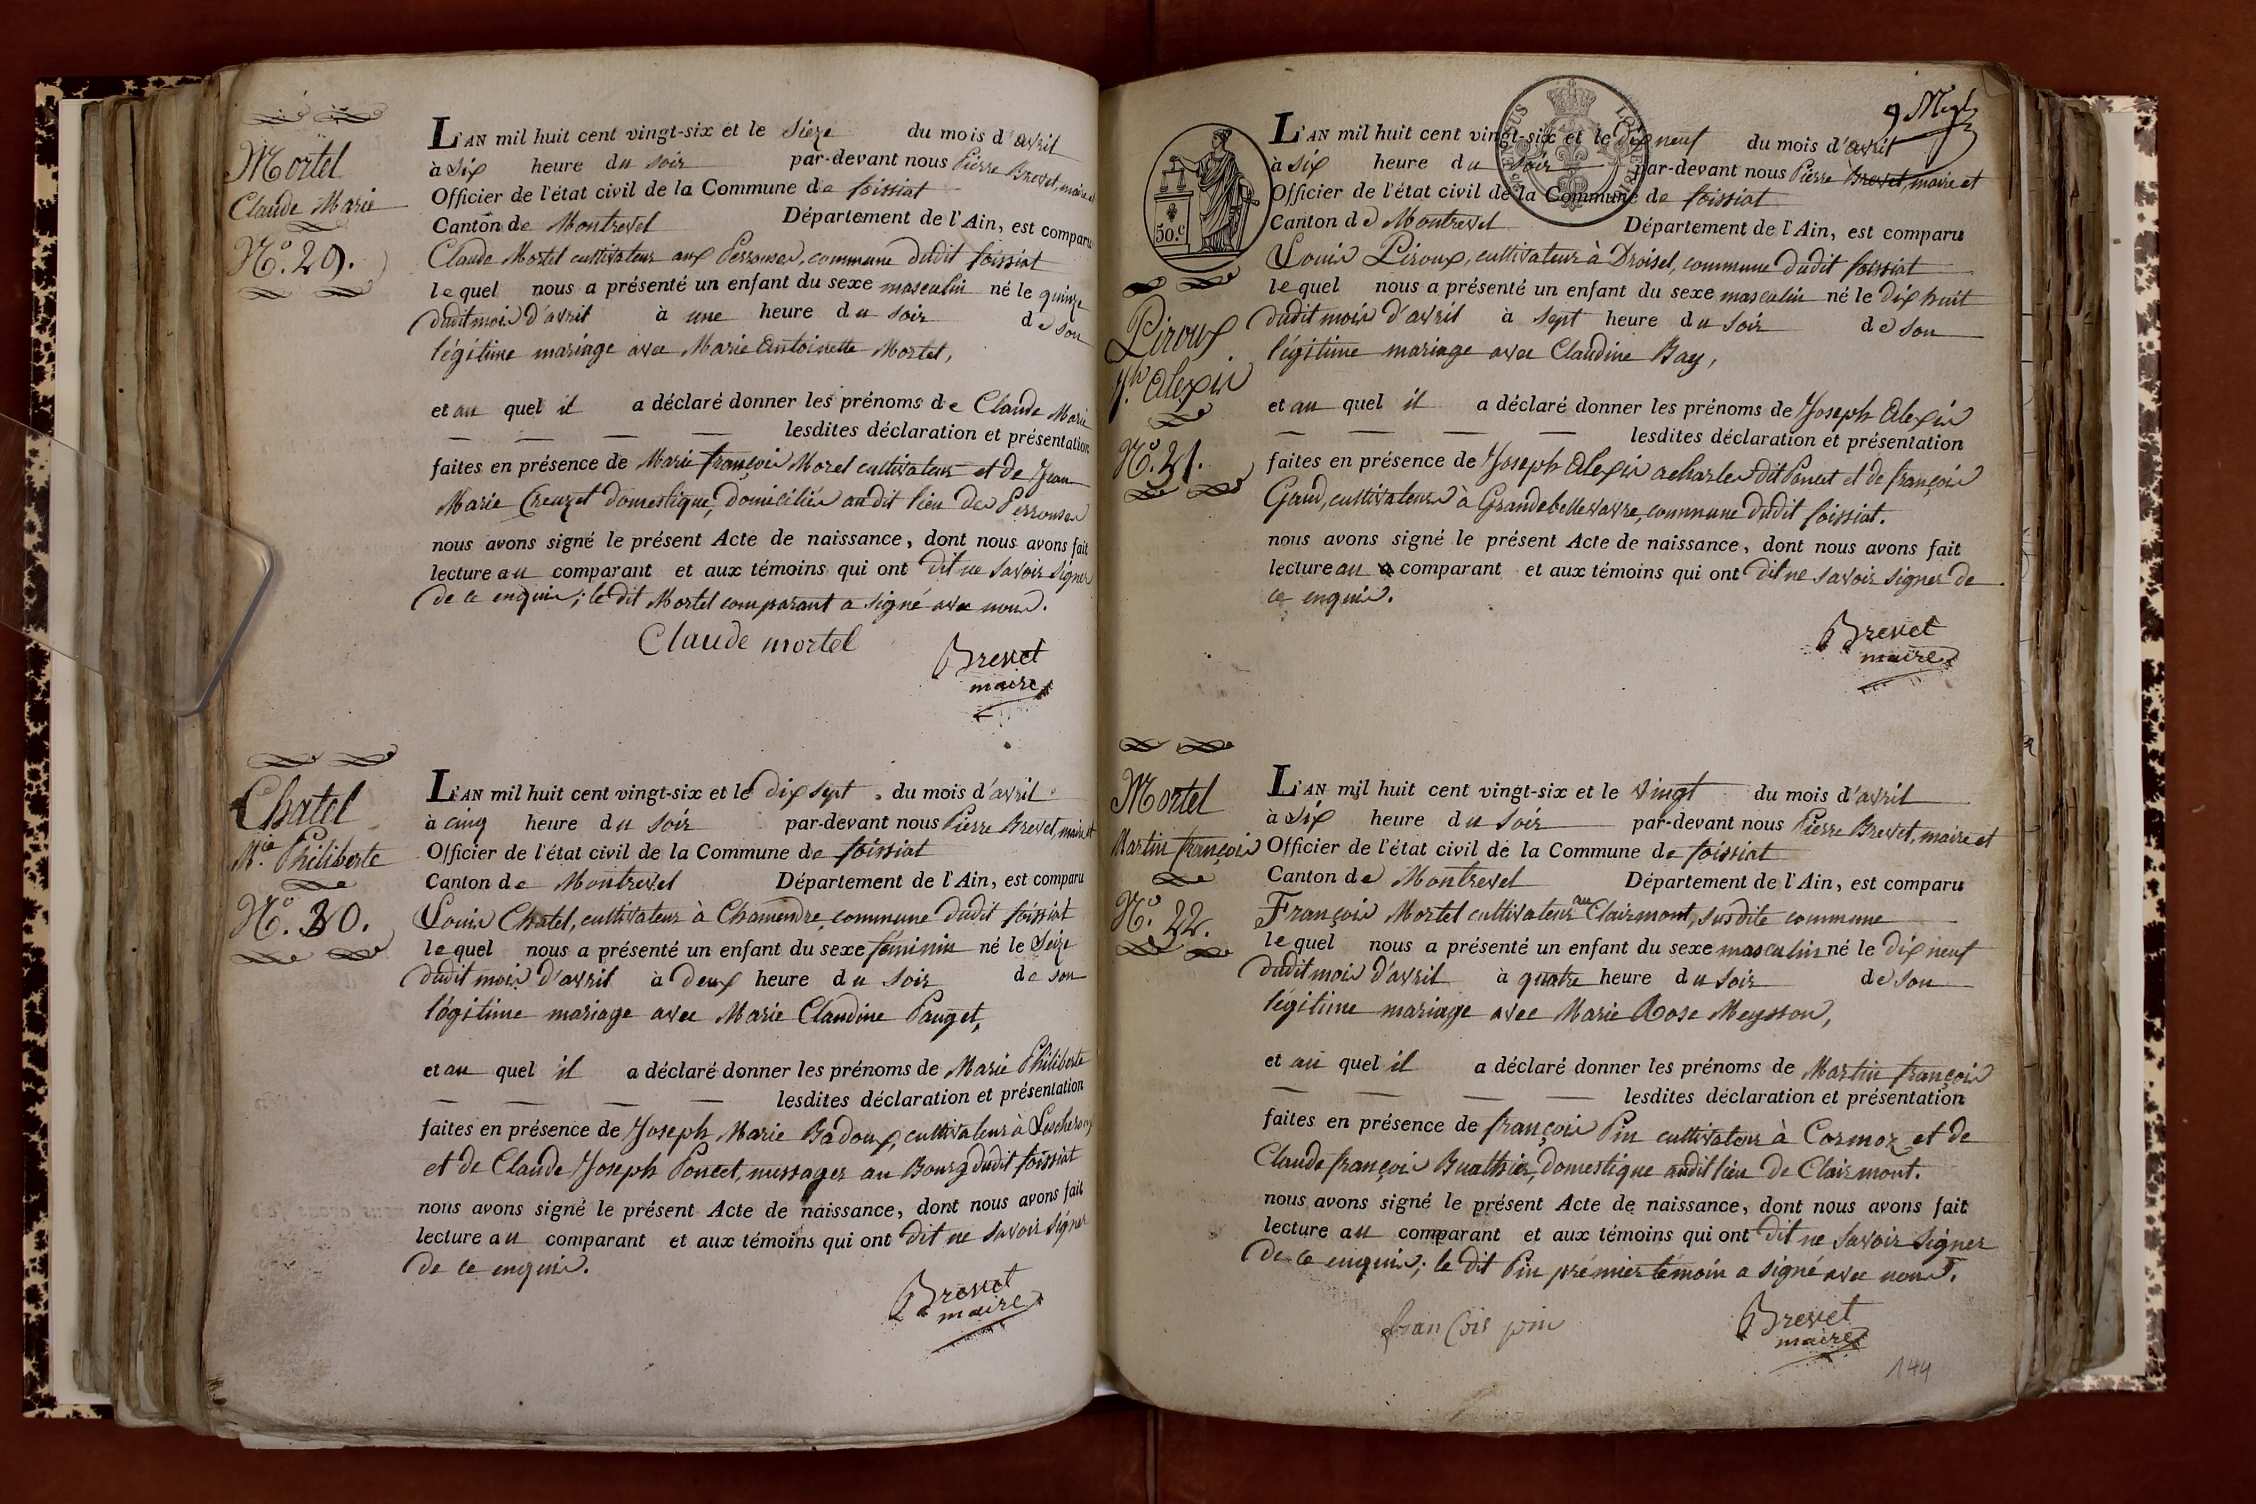 Mortel
Claude Marie
N.º 29.
L'AN mil huit cent vingt-six et le sieze du mois d'avril
à six heure du soir par-devant nous Pierre Brevet, maire et
Officier de l'état civil de la Commune de foissiat
Canton de Montrevel Département de l'Ain, est comparu
Claude Mortel cultivateur aux Perrouses, commune dudit foissiat
lequel nous a présenté un enfant du sexe masculin né le quinze
dudit mois d'avril à une heure du soir de son
légitime mariage avec Marie Antoinette Mortel,
et au quel il a déclaré donner les prénoms de Claude Marie
lesdites déclaration et présentation
faites en présence de Marie françois Morel cultivateur et de Jean
Marie Creuzet domestique, domiciliés audit lieu des Perrouses
nous avons signé le présent Acte de naissance, dont nous avons fait
lecture au comparant et aux témoins qui ont dit ne savoir signer
de ce enquis; le dit Mortel comparant a signé avec nous.
Claude mortel
Brevet
maire
Chatel
M.ie Philiberte
N.º 20.
L'AN mil huit cent vingt-six et le dix sept du mois d'avril
à cinq heure du soir par-devant nous Pierre Brevet, maire et
Officier de l'état civil de la Commune de foissiat
Canton de Montrevel Département de l'Ain, est comparu
Louis Chatel, cultivateur à Chamendre, commune dudit foissiat
lequel nous a présenté un enfant du sexe féminin né le seize
dudit mois d'avril à deux heure du soir de son
légitime mariage avec Marie Claudine Pauget,
et au quel il a déclaré donner les prénoms de Marie Philiberte
lesdites déclaration et présentation
faites en présence de Joseph Marie Badoux, cultivateur à
et de Claude Joseph Poncet, messager au Bourg dudit foissiat
nous avons signé le présent Acte de naissance, dont nous avons fait
lecture au comparant et aux témoins qui ont dit ne savoir signer
de ce enquis.
Brevet
maire
50.c
Piroux
J.h Alexis
N.º 21.
L'AN mil huit cent vingt-six et le dix neuf du mois d'avril
à six heure du soir par-devant nous Pierre Brevet, maire et
Officier de l'état civil de la Commune de foissiat
Canton de Montrevel Département de l'Ain, est comparu
Louis Piroux, cultivateur à Droisel, commune dudit foissiat
lequel nous a présenté un enfant du sexe masculin né le dix huit
dudit mois d'avril à sept heure du soir de son
légitime mariage avec Claudine Bay,
et au quel il a déclaré donner les prénoms de Joseph Alexis
lesdites déclaration et présentation
faites en présence de Joseph Alexis acharles dit Poncet et de françois
Gaud, cultivateurs à Grandebellevavre, commune dudit foissiat.
nous avons signé le présent Acte de naissance, dont nous avons fait
lecture au comparant et aux témoins qui ont dit ne savoir signer de
ce enquis.
Brevet
maire
Mortel
Martin françois
N.º 22.
L'AN mil huit cent vingt-six et le vingt du mois d'avril
à six heure du soir par-devant nous Pierre Brevet, maire et
Officier de l'état civil de la Commune de foissiat
Canton de Montrevel Département de l'Ain, est comparu
François Mortel cultivateur au Clairmont, susdite commune
lequel nous a présenté un enfant du sexe masculin né le dix neuf
dudit mois d'avril à quatre heure du soir de son
légitime mariage avec Marie Rose Meysson,
et au quel il a déclaré donner les prénoms de Martin françois
lesdites déclaration et présentation
faites en présence de françois Pin cultivateur à Cormoz et de
Claude françois Buathier, domestique audit lieu de Clairmont.
nous avons signé le présent Acte de naissance, dont nous avons fait
lecture au comparant et aux témoins qui ont dit ne savoir signer
de ce enquis; le dit Pin prémier témoin a signé avec nous.
françois pin
Brevet
maire
144